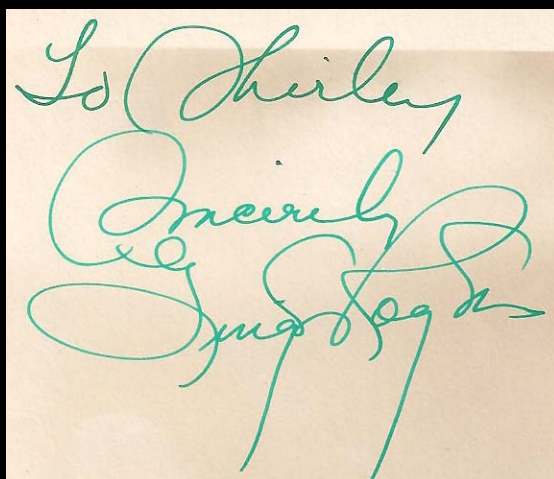 To Shirley
Sincerely
Ginger Rogers